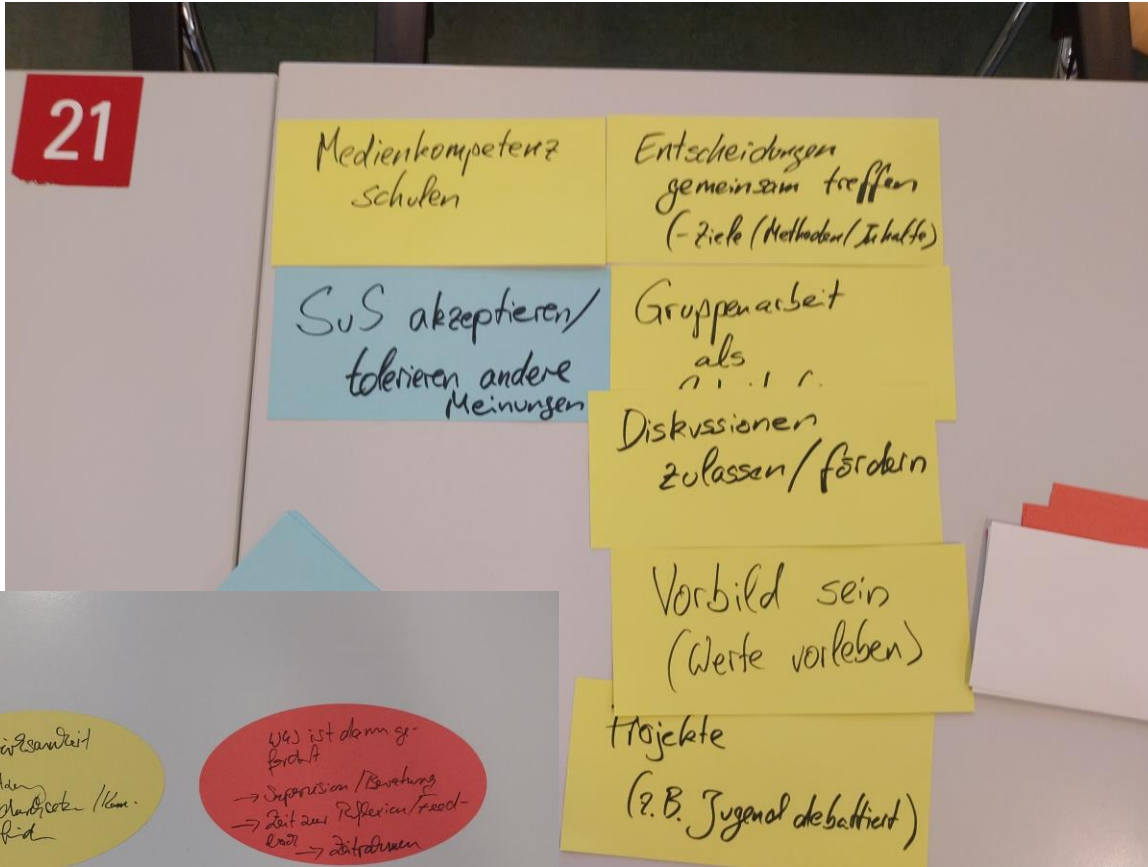 21
Medienkompetenz
schulen
Entscheidungen
gemeinsam treffen
(- Ziele / Methoden / Inhalte)
SuS akzeptieren/
tolerieren andere
Meinungen
Gruppenarbeit
als
Diskussionen
zulassen / fördern
Vorbild sein
(Werte vorleben)
Projekte
(z.B. Jugend debattiert)
was ist dann ge-
→ Supervision / Beratung
→ Zeit zur Reflexion / Feed-
back → Zeitrahmen